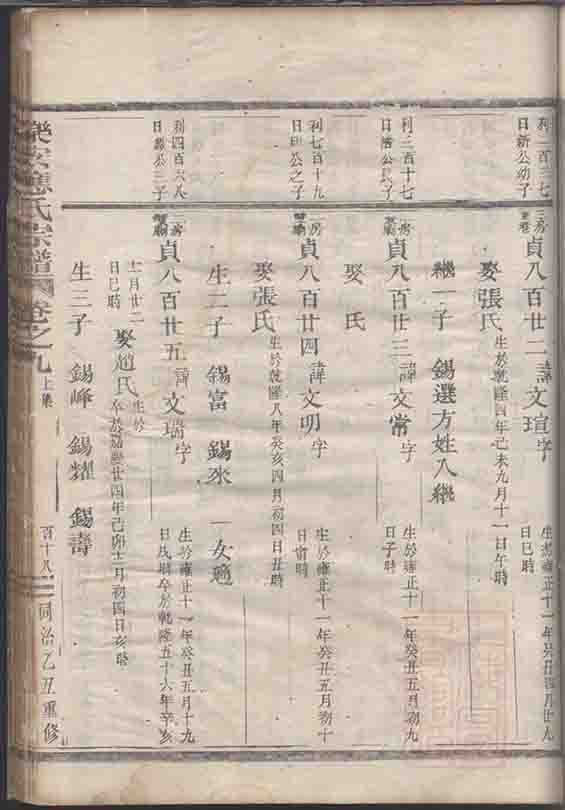 利二百三七
日新公幼子
三房
貞八百廿二諱文瑄字
生於雍正十一年癸丑四月廿九
日巳時
娶張氏
生於乾隆四年己未九月十一日午時
繼一子 錫選方姓入繼
利三百十七
日 公長子
二房
貞八百廿三諱文常字
生於雍正十一年癸丑五月初九
日子時
娶 氏
利七百十九
日 公之子
一房
貞八百廿四諱文明字
生於雍正十一年癸丑五月初十
日 時
娶張氏
生於乾隆八年癸亥四月初四日丑時
生二子 錫富 錫來 一女適
利四百六八
日 公三子
二房
貞八百廿五諱文瑞字
生於雍正十一年癸丑五月十九
日戌時卒於乾隆五十六年辛亥
十一月廿二
日巳時
娶趙氏
生於
卒於嘉慶廿四年己卯十二月初四日亥時
生三子 錫峰 錫耀 錫壽
樂安 氏宗譜 卷之九
上集
百十八
同治乙丑重修